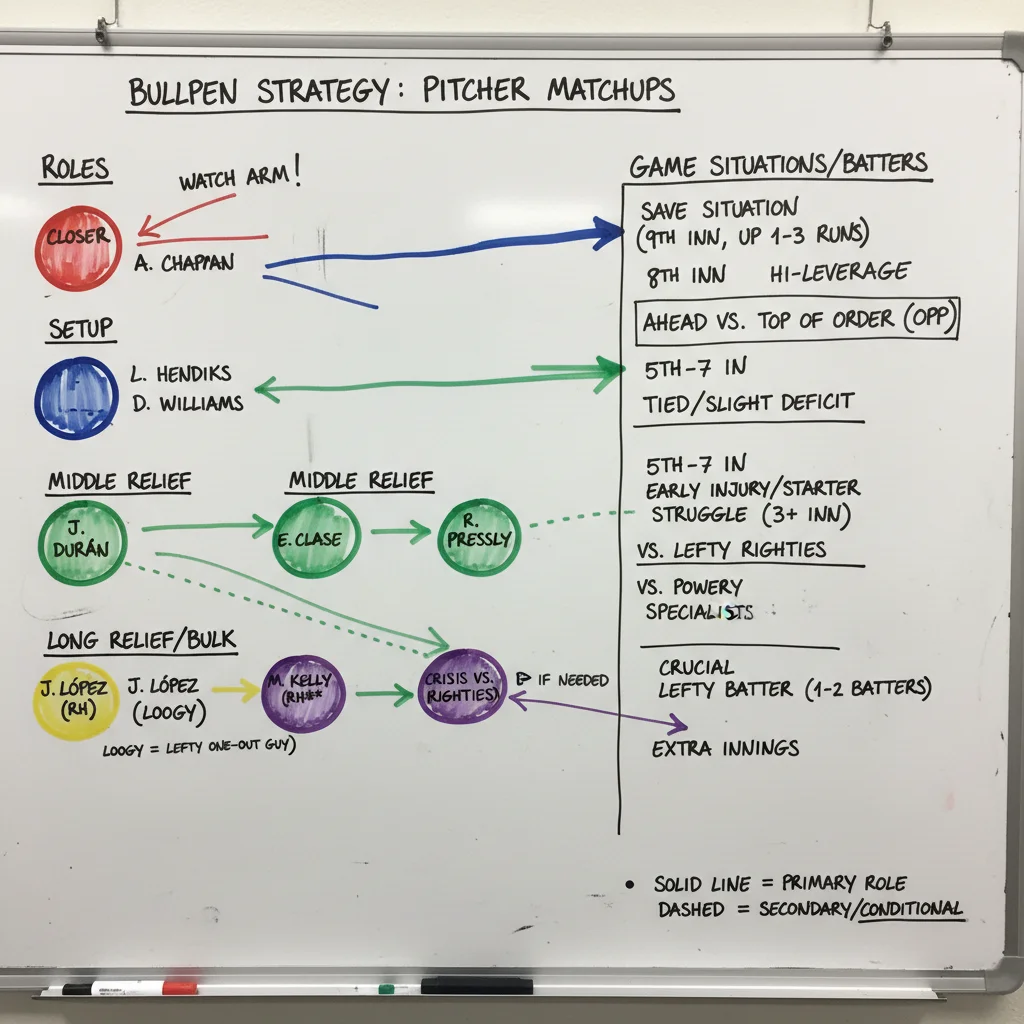 BULLPEN STRATEGY: PITCHER MATCHUPS
ROLES
WATCH ARM!
CLOSER
A. CHAPMAN
SETUP
L. HENDIKS
D. WILLIAMS
MIDDLE RELIEF
MIDDLE RELIEF
J.
DURÁN
E. CLASE
R.
PRESSLY
LONG RELIEF/BULK
J. LÓPEZ
(RH)
J. LÓPEZ
(LOOGY)
M. KELLY
(RH**
CRISIS VS.
RIGHTIES)
IF NEEDED
LOOGY = LEFTY ONE-OUT GUY)
GAME SITUATIONS/BATTERS
SAVE SITUATION
(9TH INN, UP 1-3 RUNS)
8TH INN HI-LEVERAGE
AHEAD VS. TOP OF ORDER (OPP)
5TH-7 IN
TIED/SLIGHT DEFICIT
5TH-7 IN
EARLY INJURY/STARTER
STRUGGLE (3+ INN)
VS. LEFTY RIGHTIES
VS. POWERY
SPECIALISTS
CRUCIAL
LEFTY BATTER (1-2 BATTERS)
EXTRA INNINGS
• SOLID LINE = PRIMARY ROLE
DASHED = SECONDARY/CONDITIONAL